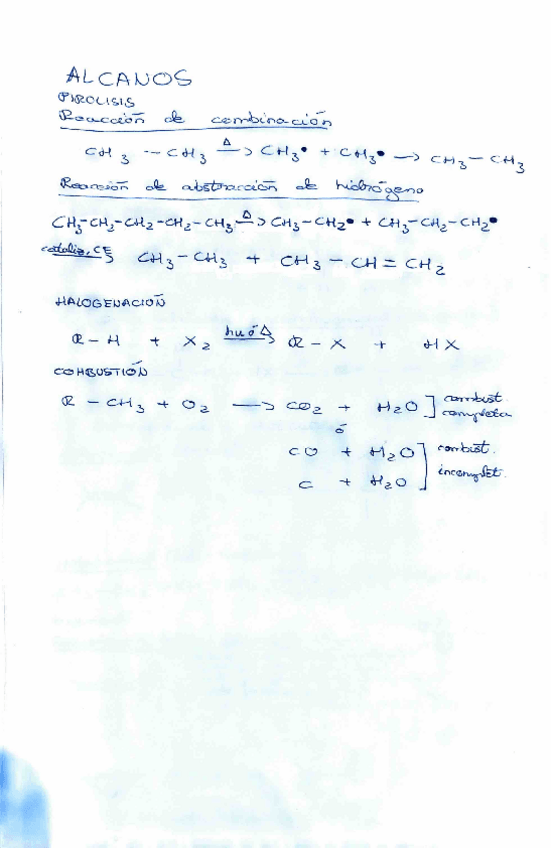 ALCANOS
PIROLISIS
Reacción de combinación
CH3 -- CH3 —Δ→ CH3• + CH3• → CH3 – CH3
Reacción de abstracción de hidrógeno
CH3-CH2-CH2-CH2-CH3 —Δ→ CH3-CH2• + CH3-CH2-CH2•
CH3-CH3 + CH3-CH=CH2
HALOGENACIÓN
R-H + X2 —hν ó Δ→ R-X + HX
COMBUSTIÓN
R-CH3 + O2 → CO2 + H2O ] combust. completa
ó
CO + H2O ] combust.
C + H2O ] incomplet.